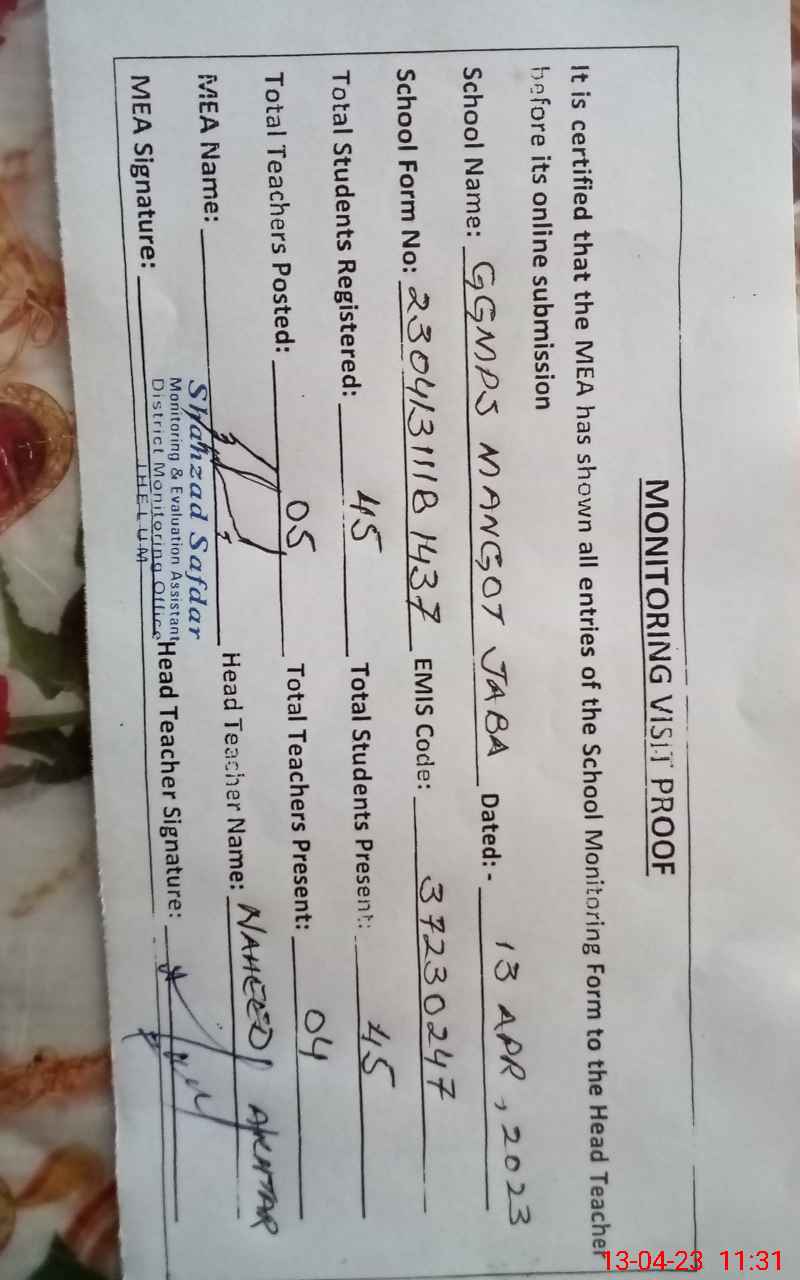 MONITORING VISIT PROOF
It is certified that the MEA has shown all entries of the School Monitoring Form to the Head Teacher
before its online submission
School Name: GGMPS MANGOT JABA Dated:- 13 APR, 2023
School Form No: 230413111B1437 EMIS Code: 37230247
Total Students Registered: 45 Total Students Present: 45
Total Teachers Posted: 05 Total Teachers Present: 04
MEA Name: Head Teacher Name: NAHEED AKHTAR
Shahzad Safdar
Monitoring & Evaluation Assistant
District Monitoring Office
JHELUM
MEA Signature: Head Teacher Signature:
13-04-23 11:31